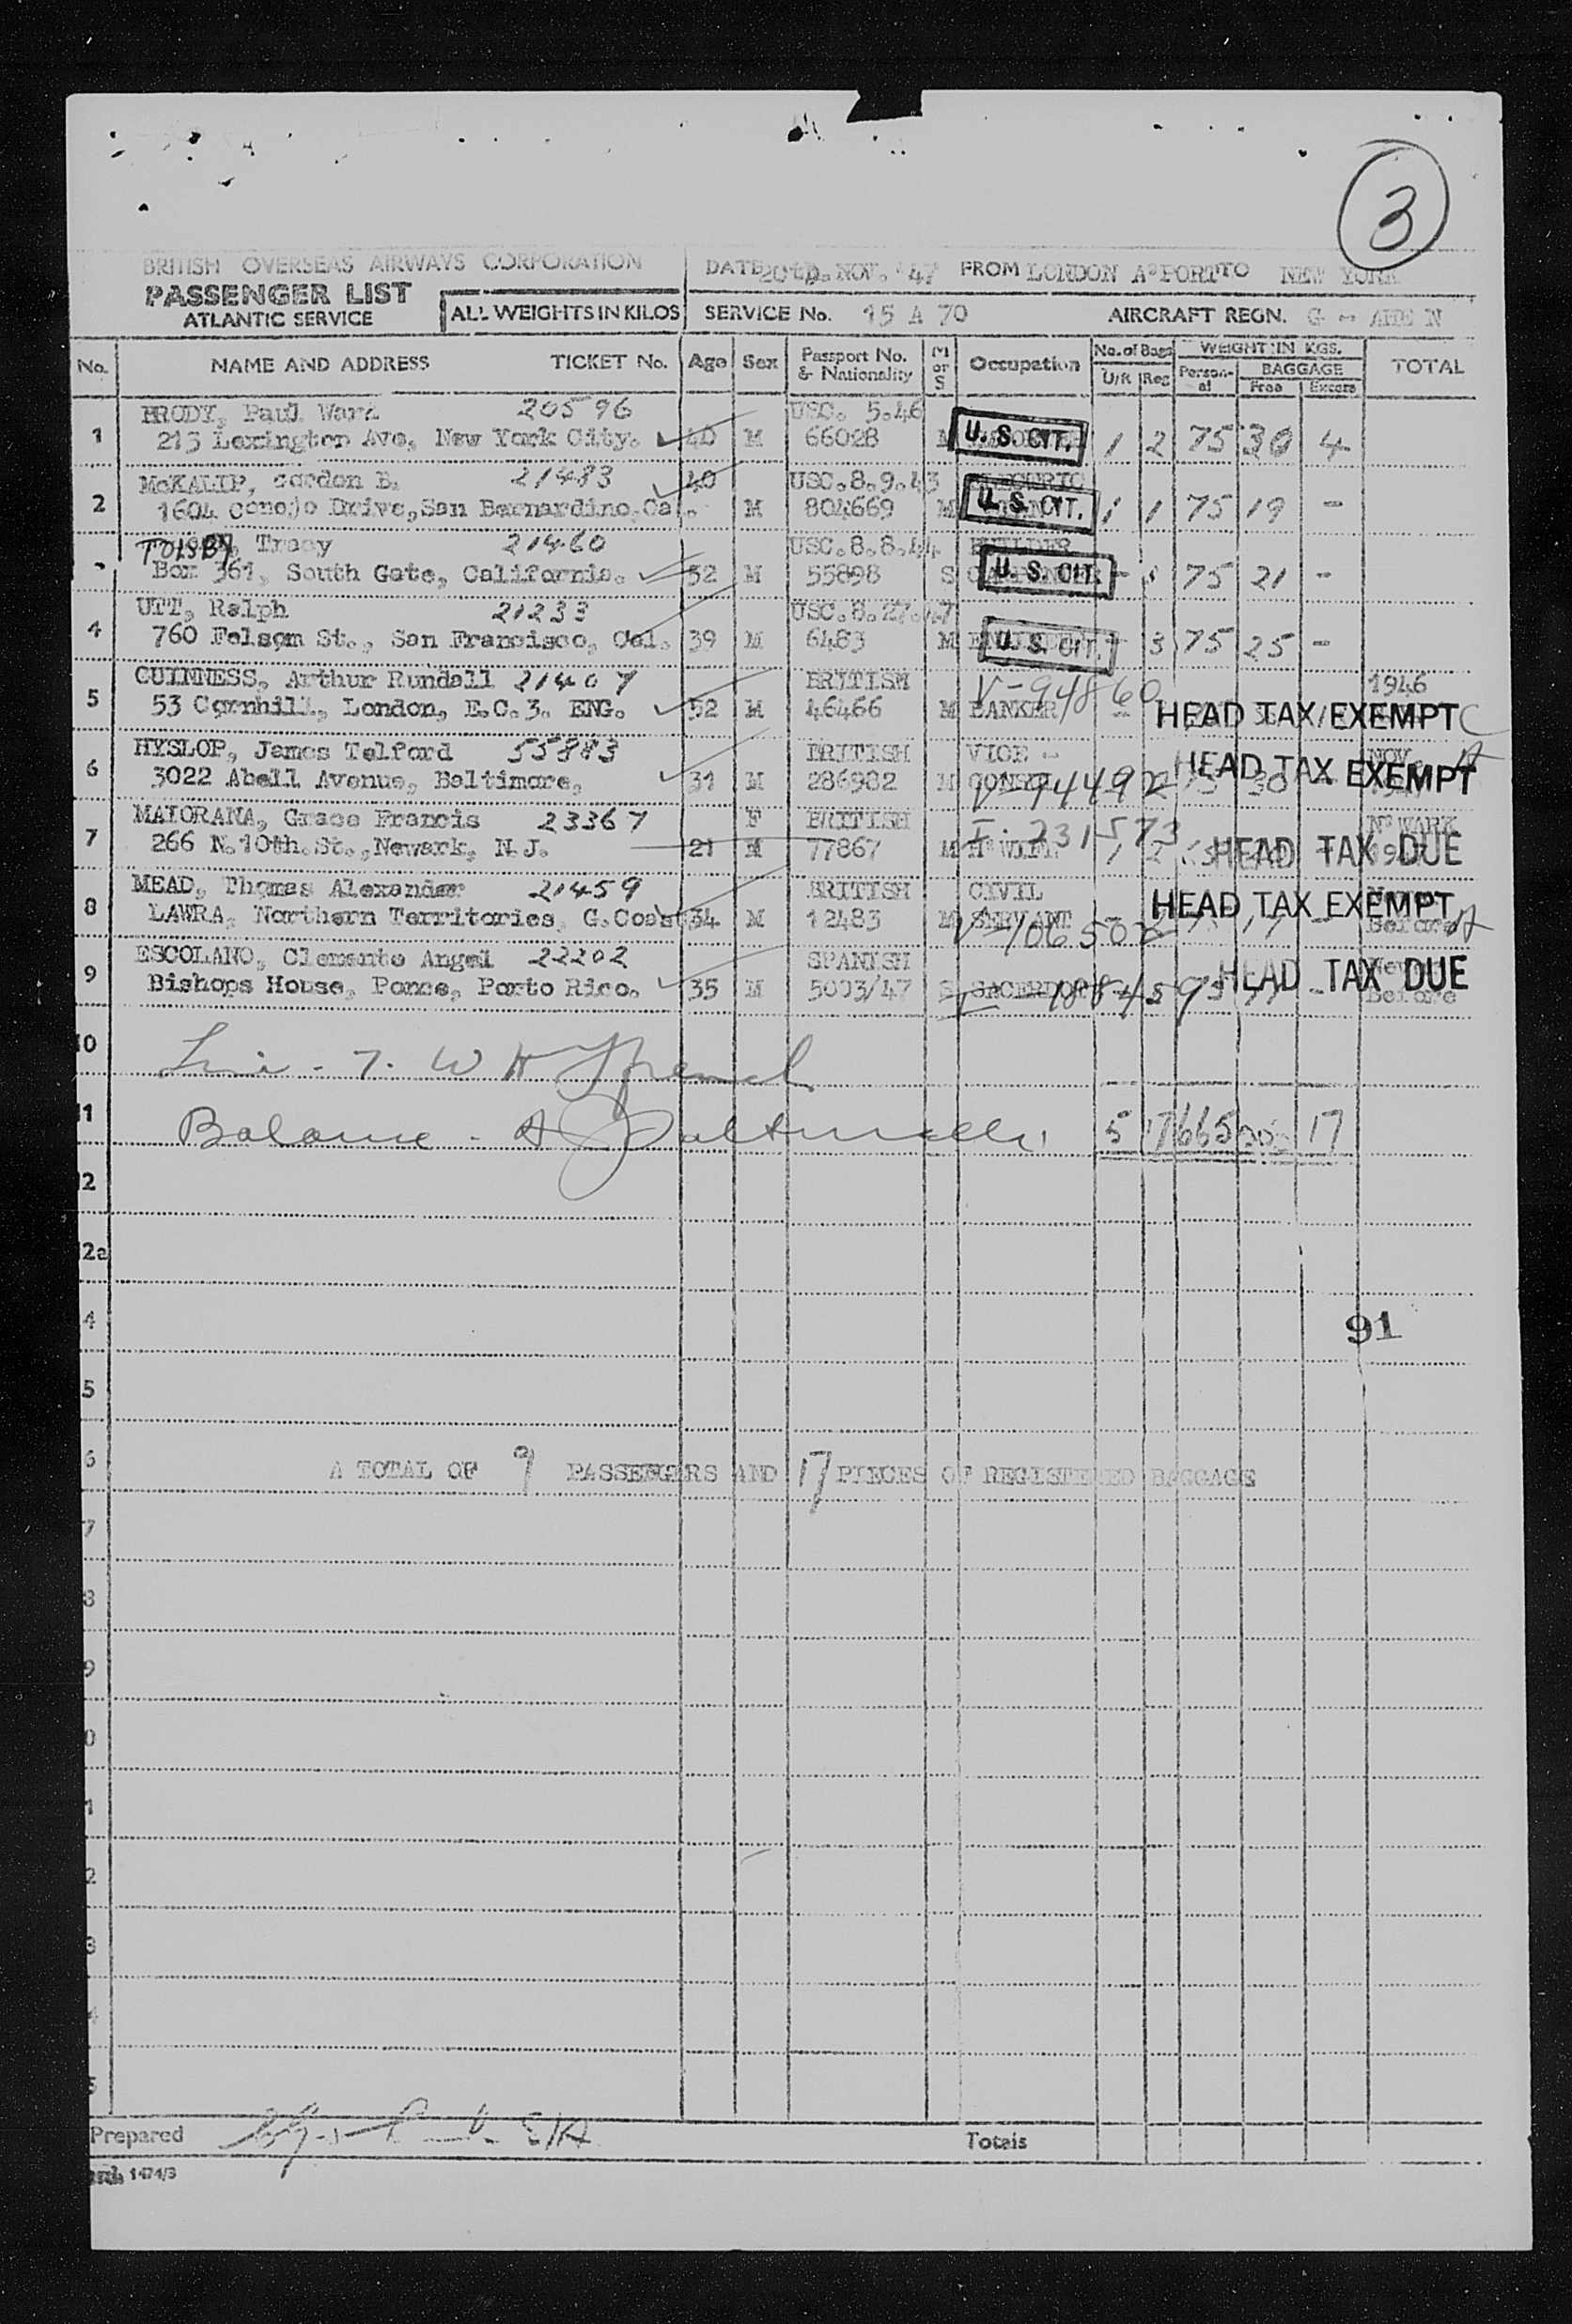 3
BRITISH OVERSEAS AIRWAYS CORPORATION
PASSENGER LIST
ATLANTIC SERVICE
ALL WEIGHTS IN KILOS
DATE 20th. NOV. '47 FROM LONDON A'PORT TO NEW YORK
SERVICE No. 15 A 70 AIRCRAFT REGN. G - AHE N
No. NAME AND ADDRESS TICKET No. Age Sex Passport No. & Nationality M or S Occupation No. of Bags U/R Reg WEIGHT IN KGS. Personal BAGGAGE Free Excess TOTAL
1 BRODY, Paul Ward 20596 USC. 5.46
213 Lexington Ave, New York City. 40 M 66028 M U. S. CIT. 1 2 75 30 4
2 McKALIP, Gordon B. 21483 40 USC.8.9.43
1604 Conejo Drive, San Barnardino, Cal. M 804669 M U. S. CIT. 1 1 75 19 -
Tracy 21460 USC.8.8.44 BUILDER
Box 361, South Gate, California. 52 M 55898 S U. S. CIT. - 75 21 -
4 UTT, Ralph 21233 USC.8.27.47
760 Folsom St., San Francisco, Cal. 39 M 6483 M U. S. CIT. - 3 75 25 -
5 GUINNESS, Arthur Rundall 21407 BRITISH V-94860 1946
53 Cornhill, London, E.C.3. ENG. 52 M 46466 M BANKER HEAD TAX EXEMPT C
6 HYSLOP, James Telford 55883 BRITISH VICE - NOV.
3022 Abell Avenue, Baltimore, 31 M 286982 M HEAD TAX EXEMPT
7 MAIORANA, Grace Francis 23367 F BRITISH I-231573 N'WARK
266 N.10th.St.,Newark, N.J. 21 M 77867 M H'WIFE 1 2 HEAD TAX DUE
8 MEAD, Thomas Alexander 21459 BRITISH CIVIL
LAWRA, Northern Territories, G.Coast 34 M 12483 M SERVANT HEAD TAX EXEMPT
9 ESCOLANO, Clemente Angel 22202 SPANISH
Bishops House, Ponce, Porto Rico. 35 M 5003/47 S HEAD TAX DUE Before
10
11 Balance - 5 17 665 17
2
2a
4
91
5
6 A TOTAL OF 9 PASSENGERS AND 17 PIECES OF REGISTERED BAGGAGE
7
8
9
0
1
2
3
4
5
Prepared Totals
1474/3